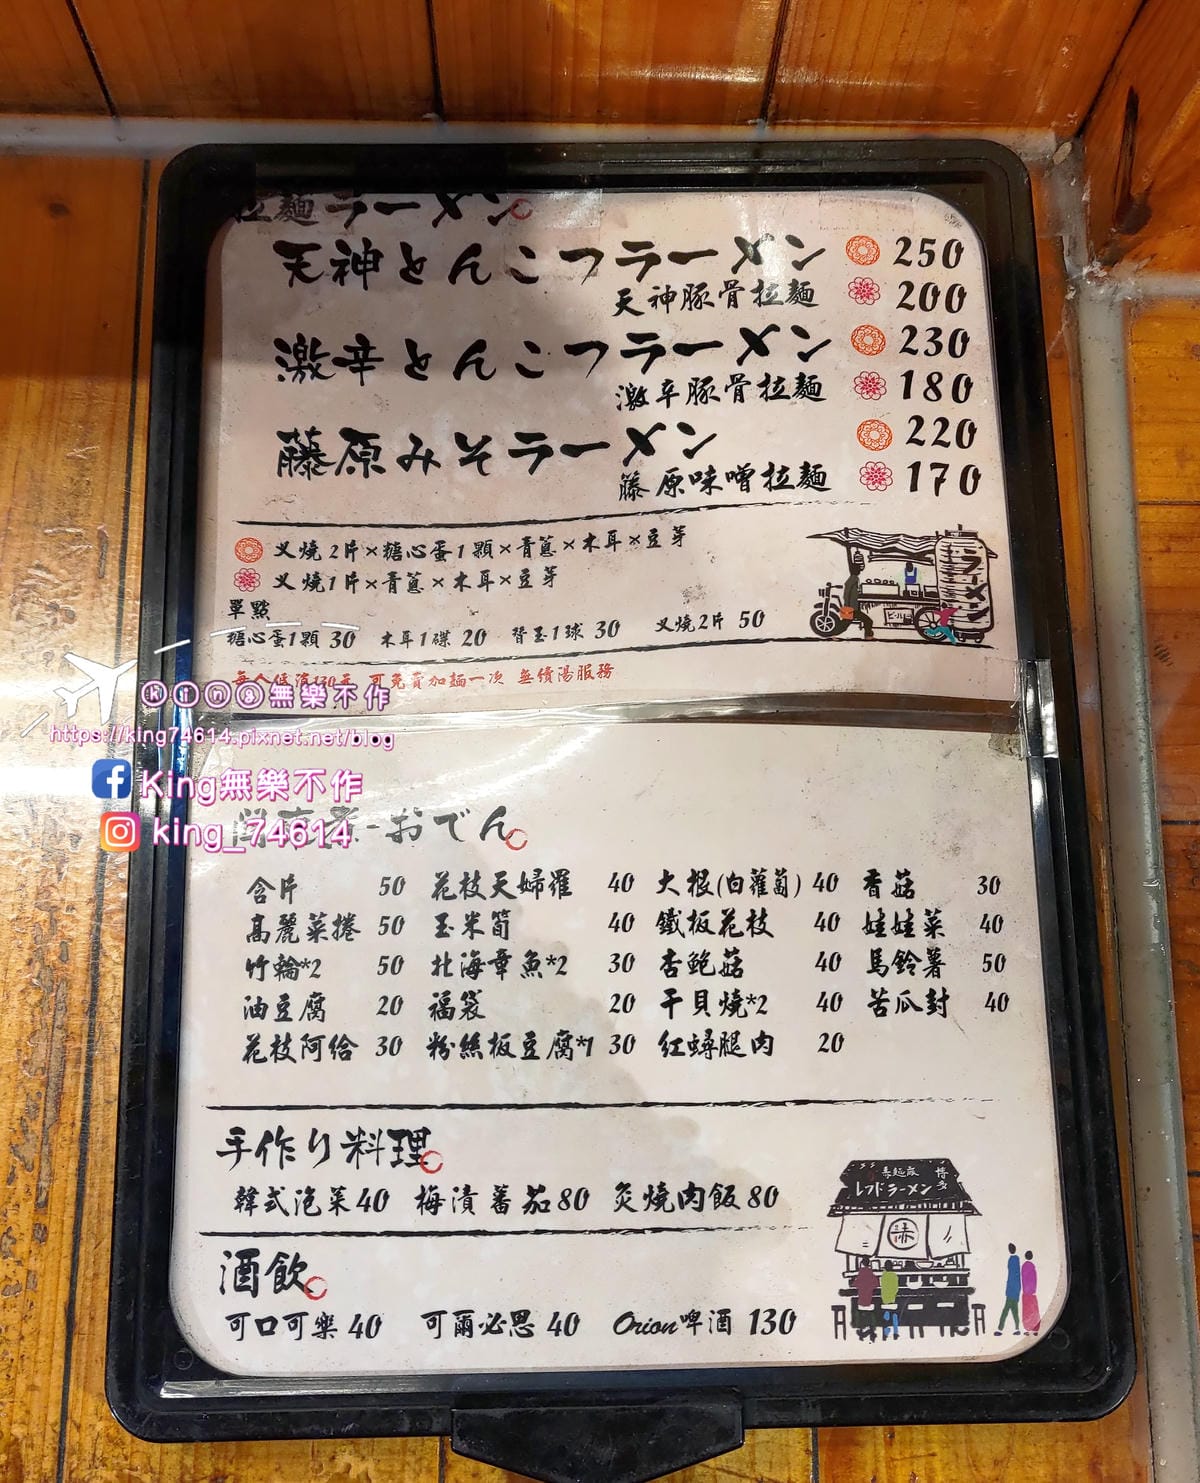 拉麵 ラーメン
天神とんこつラーメン 250
天神豚骨拉麵 200
激辛とんこつラーメン 230
激辛豚骨拉麵 180
藤原みそラーメン 220
籐原味噌拉麵 170
叉燒2片×糖心蛋1顆×青蔥×木耳×豆芽
叉燒1片×青蔥×木耳×豆芽
單點
糖心蛋1顆 30 木耳1碟 20 替玉1球 30 叉燒2片 50
每人低消130元 可免費加麵一次 無續湯服務
king無樂不作
https://king74614.pixnet.net/blog
King無樂不作
king_74614
おでん
含片 50 花枝天婦羅 40 大根(白蘿蔔) 40 香菇 30
高麗菜捲 50 玉米筍 40 鐵板花枝 40 娃娃菜 40
竹輪*2 50 北海章魚*2 30 杏鮑菇 40 馬鈴薯 50
油豆腐 20 福袋 20 干貝燒*2 40 苦瓜封 40
花枝阿給 30 粉絲板豆腐*1 30 紅蟳腿肉 20
手作り料理
韓式泡菜40 梅漬蕃茄80 炙燒肉飯80
酒飲
可口可樂 40 可爾必思 40 Orion啤酒 130
博多
ラーメン